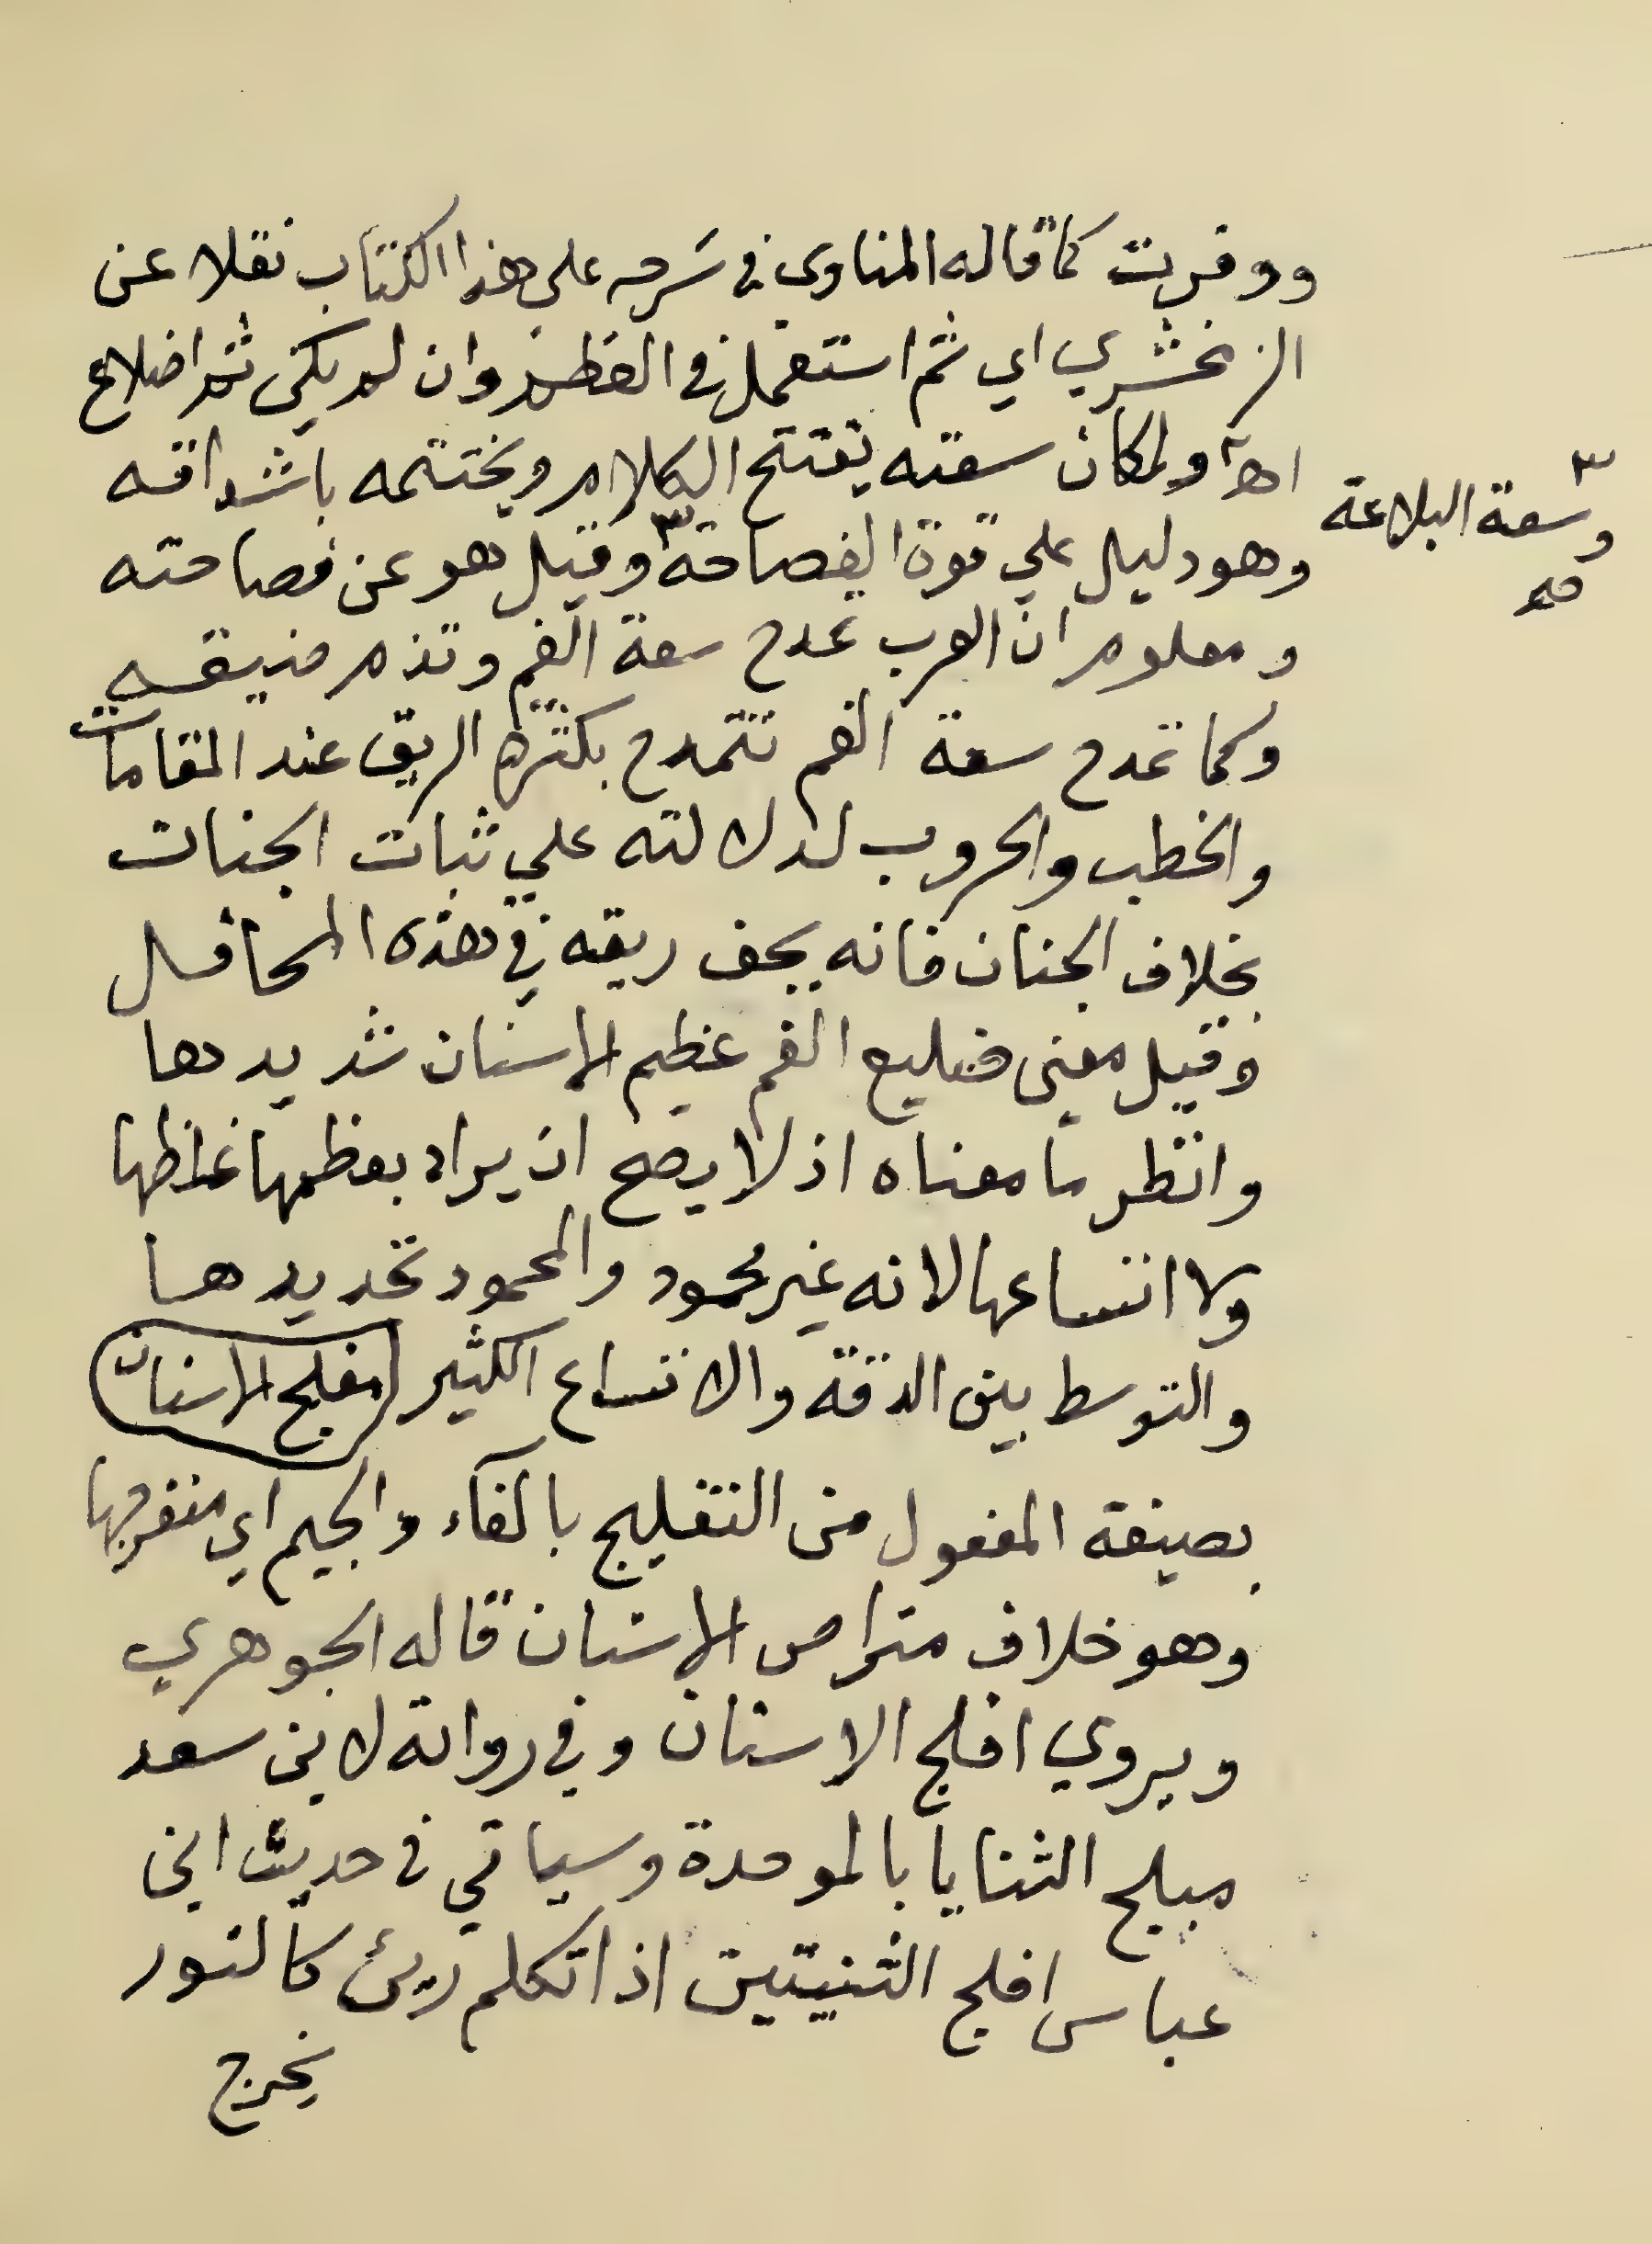 ووفرت كما قاله المناوي في شرحه على هذا الكتاب نقلا عن
الزمخشري اي ثم استعمل في العظم وان لم يكن ثم اضلاع
اهـ ولمكان سعته يفتتح الكلام ويختتمه باشداقه
وهو دليل علي قوة الفصاحة ٣ وقيل هو عن فصاحته
٣
وسعة البلاغة
صح
ومعلوم ان العرب تمدح سعة الفم وتذم ضيقه
وكما تمدح سعة الفم تتمدح بكثرة الريق عند المقامات
والخطب والحروب لدلالته علي ثبات الجنان
بخلاف الجبان فانه يجف ريقه في هذه المحافل
وقيل معنى ضليع الفم عظيم الاسنان شديدها
وانظر ما معناه اذ لا يصح ان يراد بعظمها غلظها
ولا اتساعها لانه غير محمود والمحمود تحديدها
والتوسط بين الدقة والاتساع الكثير (مفلج الاسنان)
بصيغة المفعول من التفليج بالفاء والجيم اي منفرجها
وهو خلاف متراص الاسنان قاله الجوهري
ويروي افلج الاسنان وفي رواية لابن سعد
مبلج الثنايا بالموحدة وسياتي في حديث ابن
عباس افلج الثنيتين اذا تكلم ريئ كالنور
يخرج